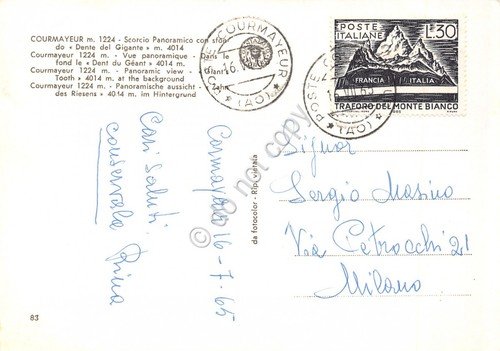 COURMAYEUR m. 1224 - Scorcio Panoramico con sfon-
do « Dente del Gigante » m. 4014
Courmayeur 1224 m. - Vue panoramique - Dans le
fond le « Dent du Géant » 4014 m.
Courmayeur 1224 m. - Panoramic view - Giant's
Tooth » 4014 m. at the background
Courmayeur 1224 m. - Panoramische aussicht - Zahn
des Riesens » 4014 m. im Hintergrund
POSTE COURMAYEUR
(AO)
POSTE
(AO)
POSTE ITALIANE
L.30
FRANCIA ITALIA
TRAFORO DEL MONTE BIANCO
1965
Courmayeur 16-7-65
Cari saluti
conservala
da fotocolor - Rip. vietata
Signor
Sergio Masino
Via Petrocchi 21
Milano
83
do not copy